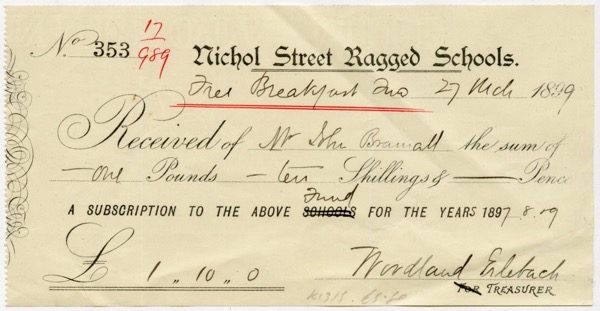 No 353 17/989 Nichol Street Ragged Schools.
Free Breakfast Fund 27 Mch 1899
Received of Mr John Bramall the sum of
— One Pounds — ten Shillings & —— Pence
Fund
A SUBSCRIPTION TO THE ABOVE SCHOOLS FOR THE YEARS 1897.8.09
£ 1 " 10 " 0 Woodland Erlebach
For TREASURER